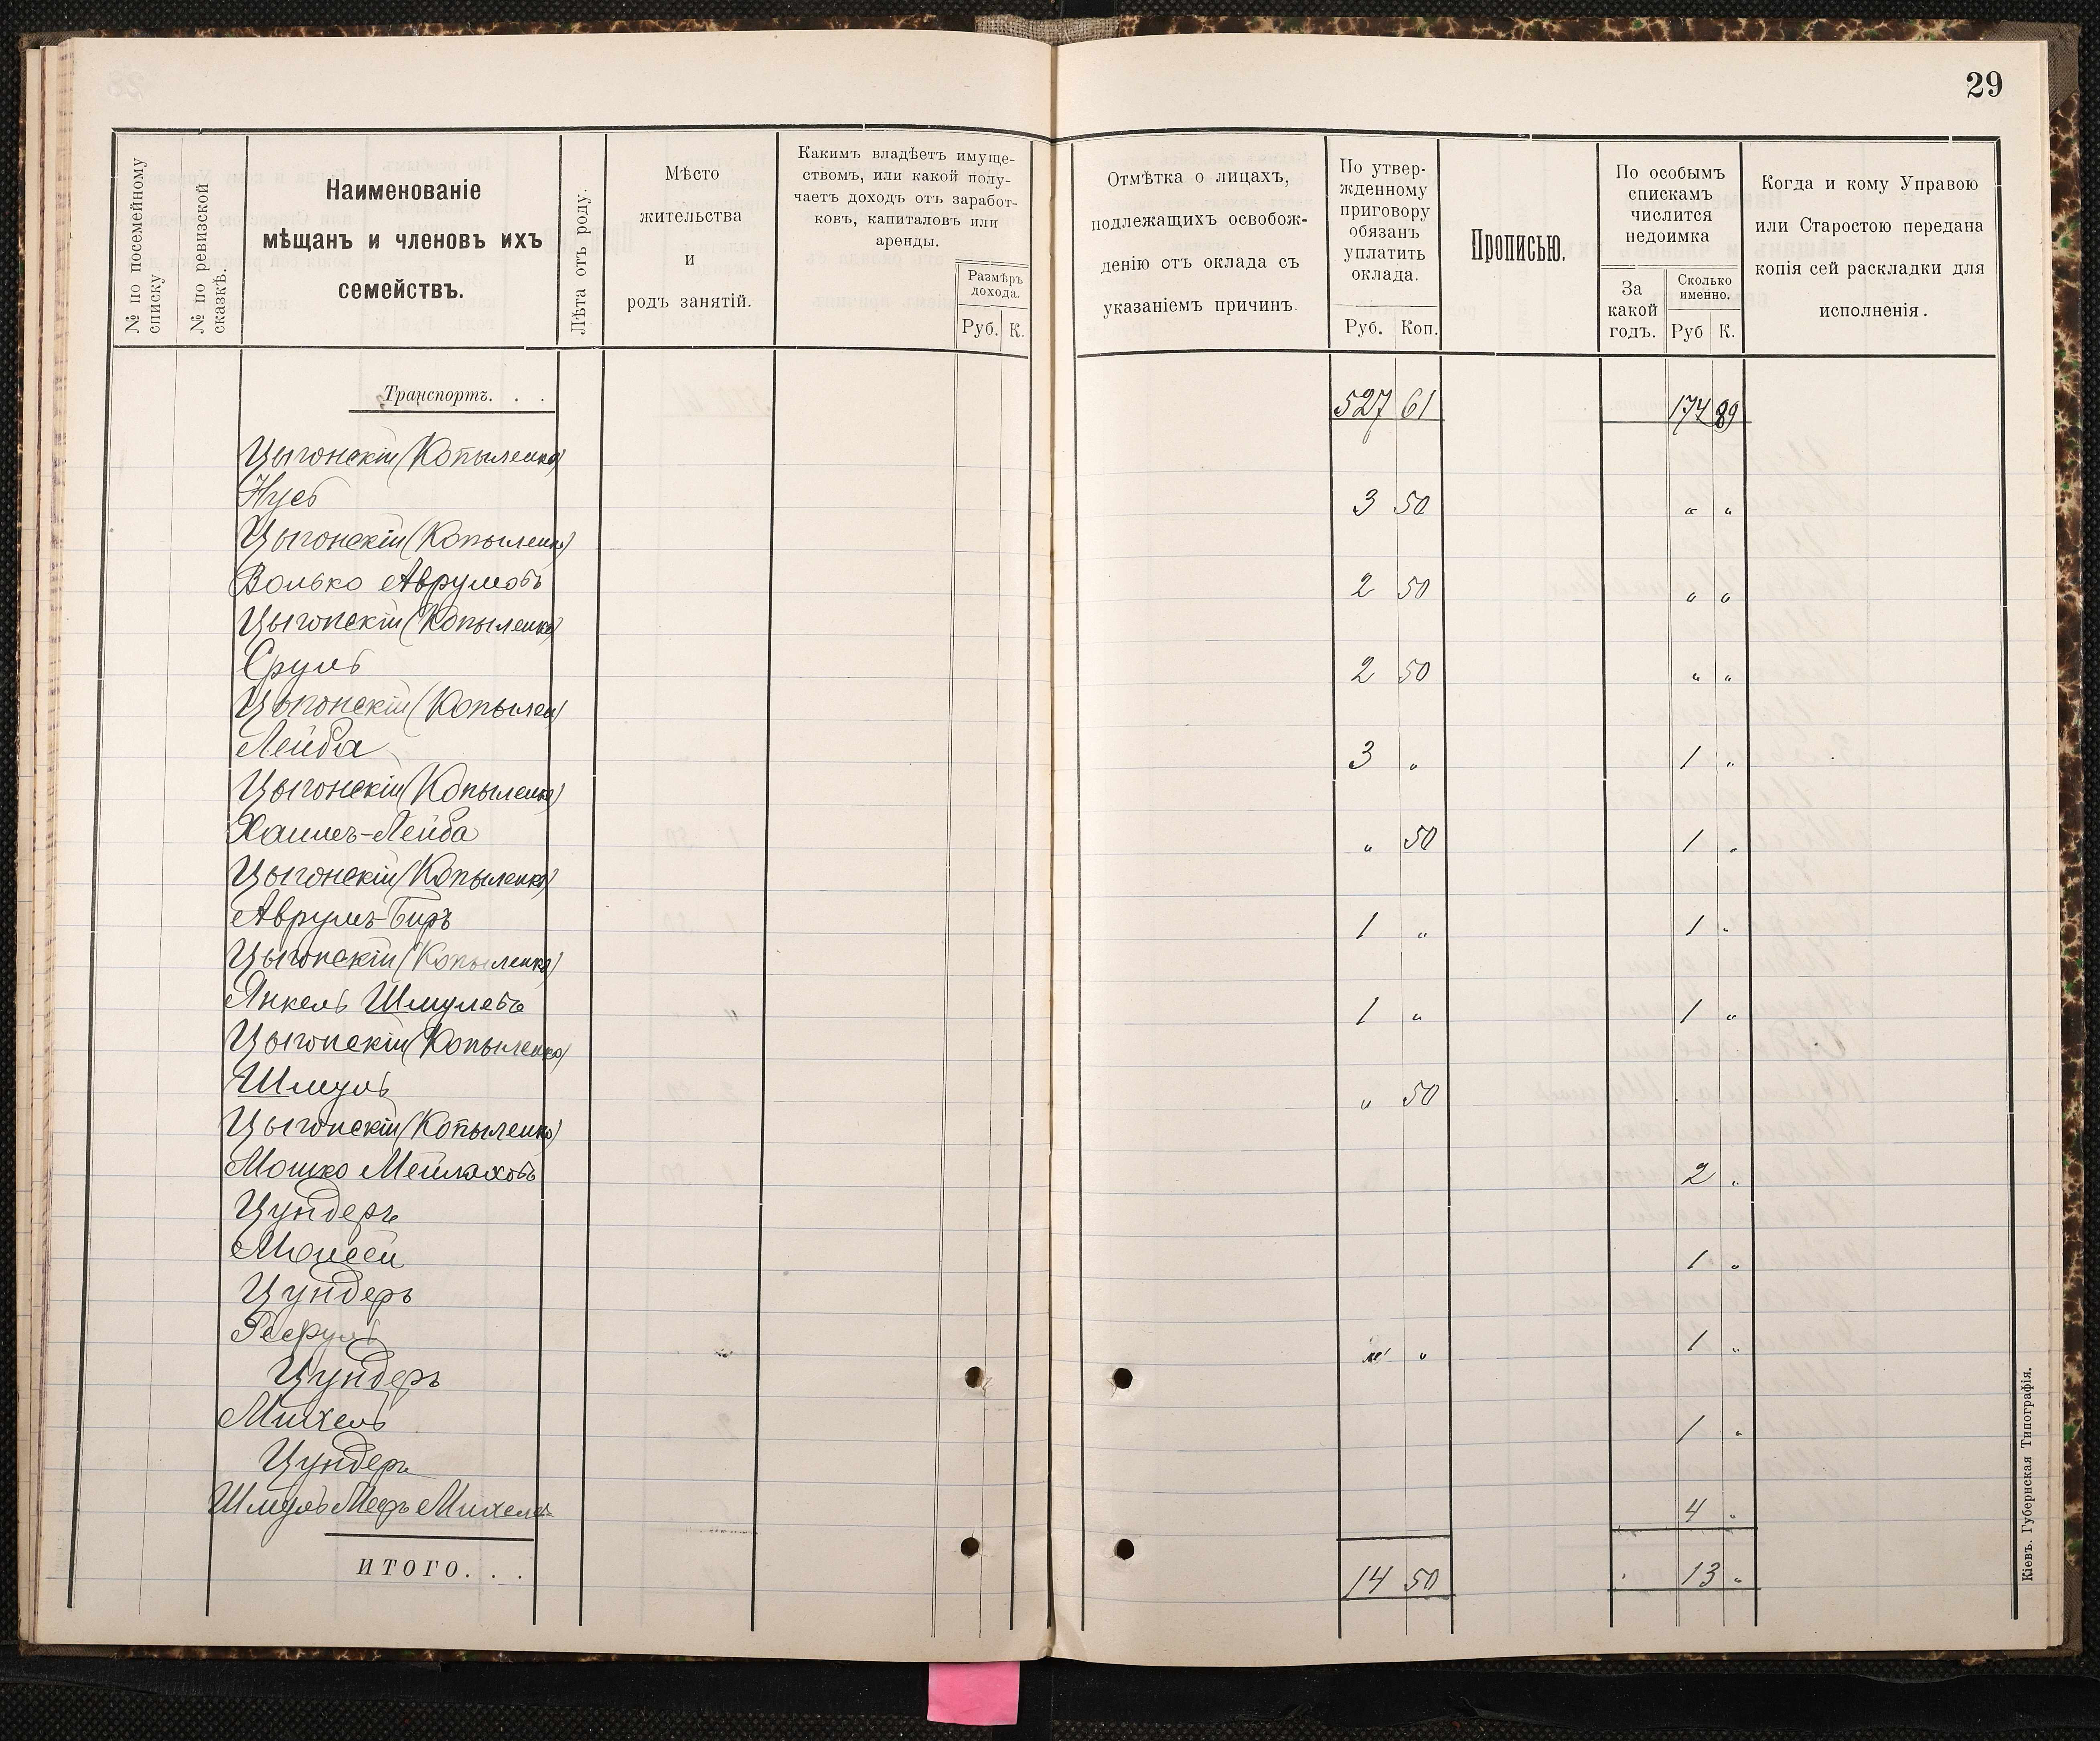 29
№ по посемейному списку
№ по ревизской сказкѣ.
Наименованіе
мѣщанъ и членовъ ихъ
семействъ.
Лѣта отъ роду.
Мѣсто
жительства
и
родъ занятій.
Какимъ владѣетъ имуще-
ствомъ, или какой полу-
чаетъ доходъ отъ заработ-
ковъ, капиталовъ или
аренды.
Размѣръ
дохода.
Руб. К.
Отмѣтка о лицахъ,
подлежащихъ освобож-
денію отъ оклада съ
указаніемъ причинъ.
По утвер-
жденному
приговору
обязанъ
уплатить
оклада.
Руб. Коп.
Прописью.
По особымъ
спискамъ
числится
недоимка
За
какой
годъ.
Сколько
именно.
Руб К.
Когда и кому Управою
или Старостою передана
копія сей раскладки для
исполненія.
Транспортъ. . . 527 61 174 89
Цыгонскій (Копыленко)
Нусь 3 50 " "
Цыгонскій (Копыленко)
Волько Аврумовъ 2 50 " "
Цыгонскій (Копыленко)
Сруль 2 50 " "
Цыгонскій (Копылен)
Лейба 3 " 1 "
Цыгонскій (Копыленко)
Хаимъ-Лейба " 50 1 "
Цыгонскій (Копыленко)
Аврумъ-Беръ 1 " 1 "
Цыгонскій (Копыленко)
Янкель Шмулевъ 1 " 1 "
Цыгонскій (Копыленко)
Шмуль " 50
Цыгонскій (Копыленко)
Мошко Мейлаховъ 2 "
Цундеръ
Моисей 1 "
Цундеръ
" 1 "
Цундеръ
Михель 1 "
Цундеръ
Шмуль Мееръ Михелев 4 "
ИТОГО. . . 14 50 13 "
Кіевъ. Губернская Типографія.